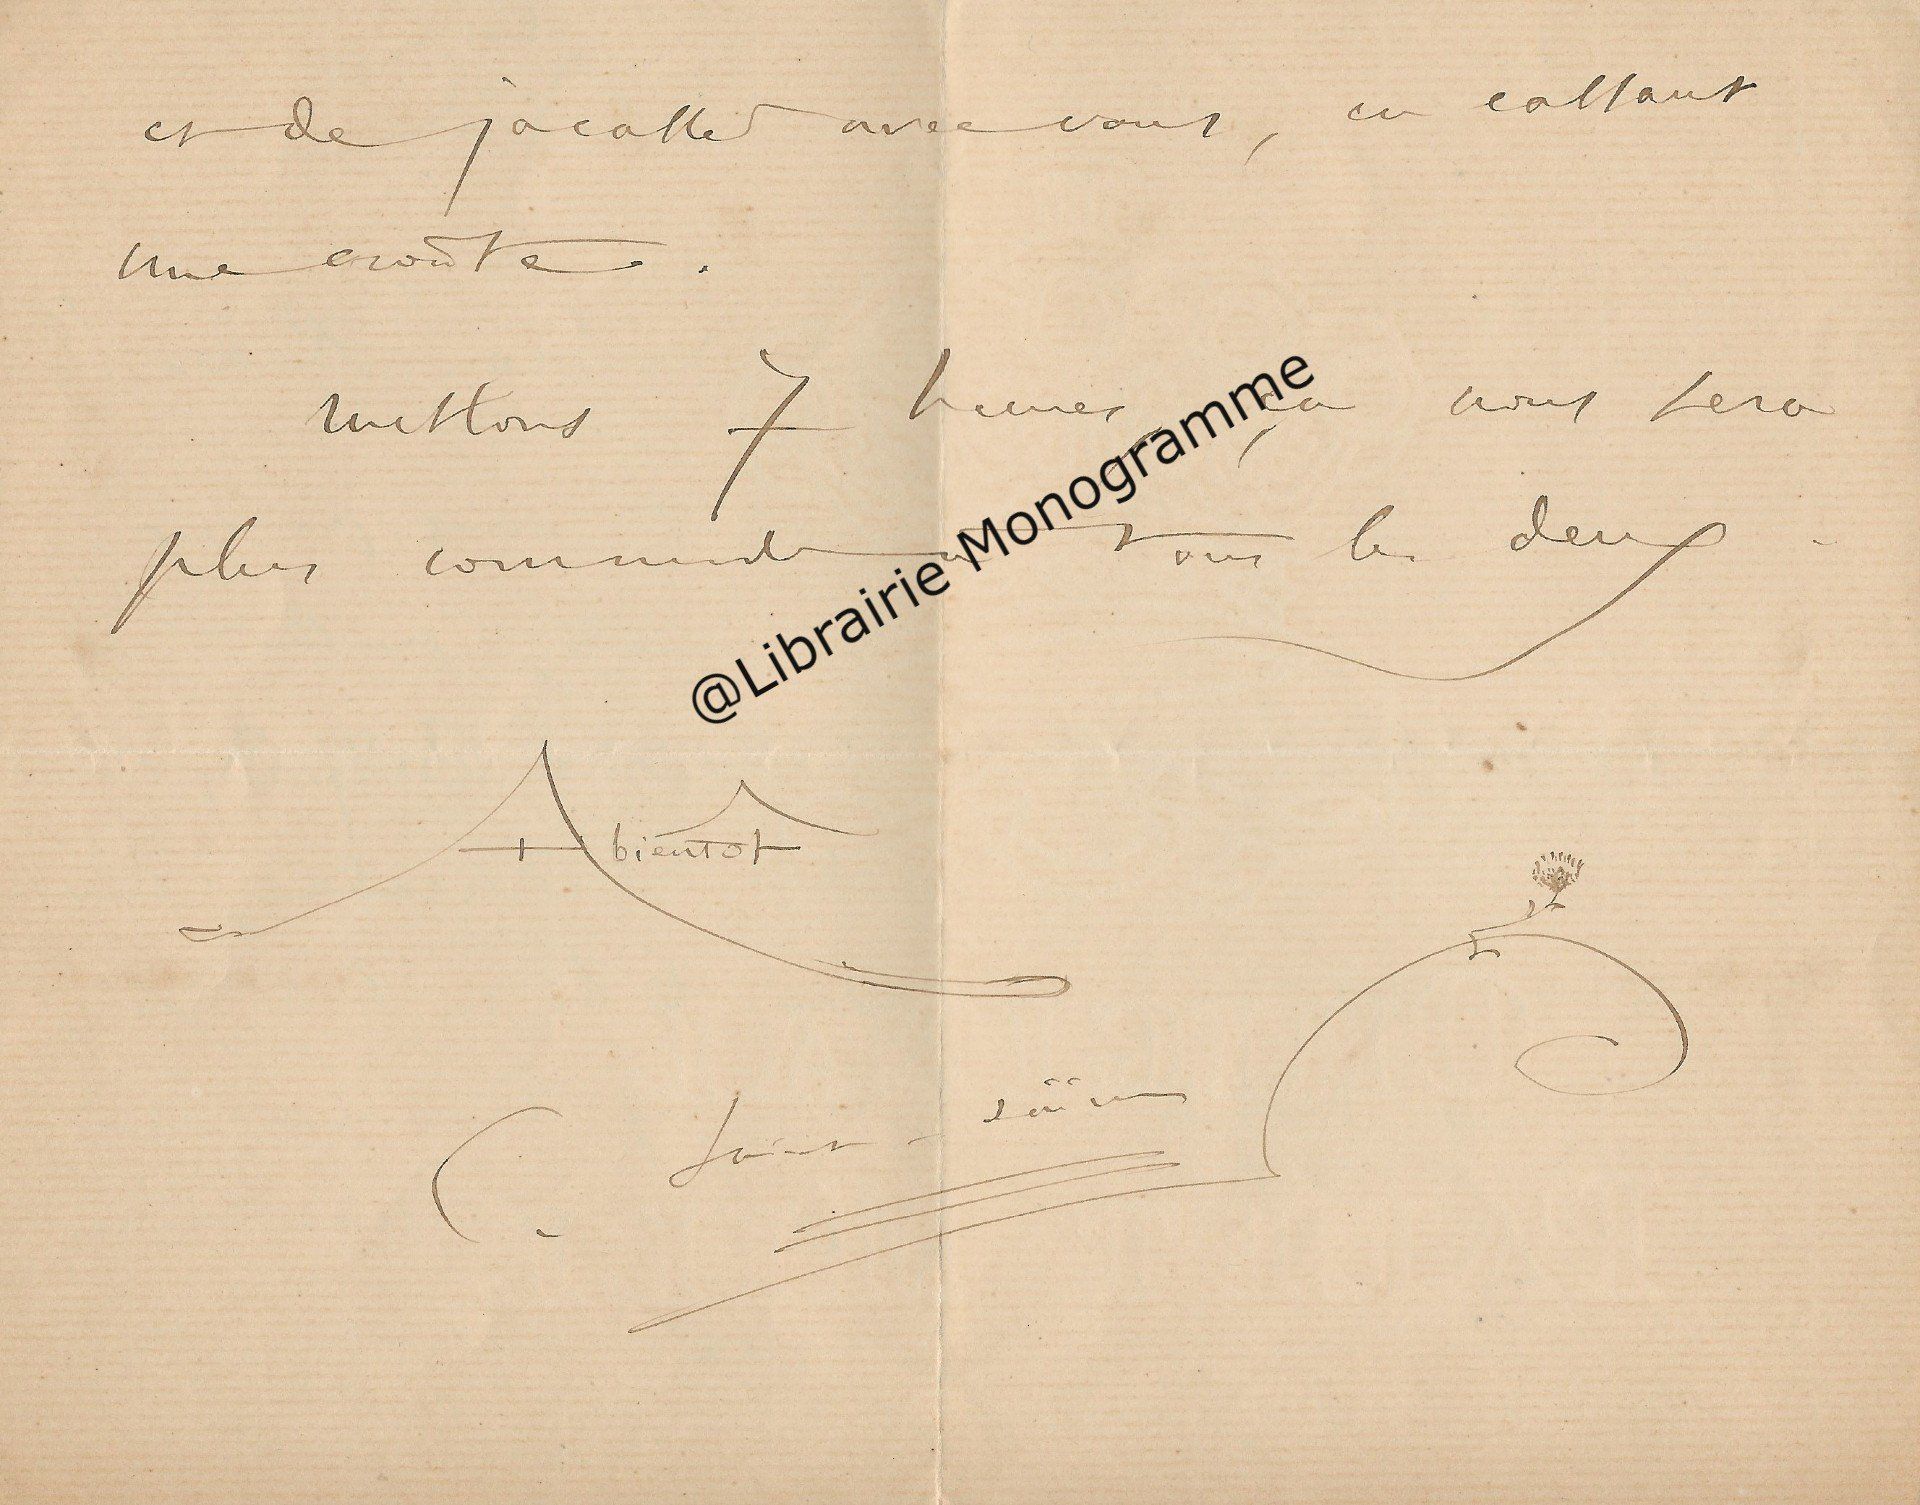 et de jacasser avec vous, en cassant
une croûte.
mettons 7 heures, ça nous sera
plus commode à tous les deux.
@Librairie Monogramme
A bientôt
C. Saint-Saëns